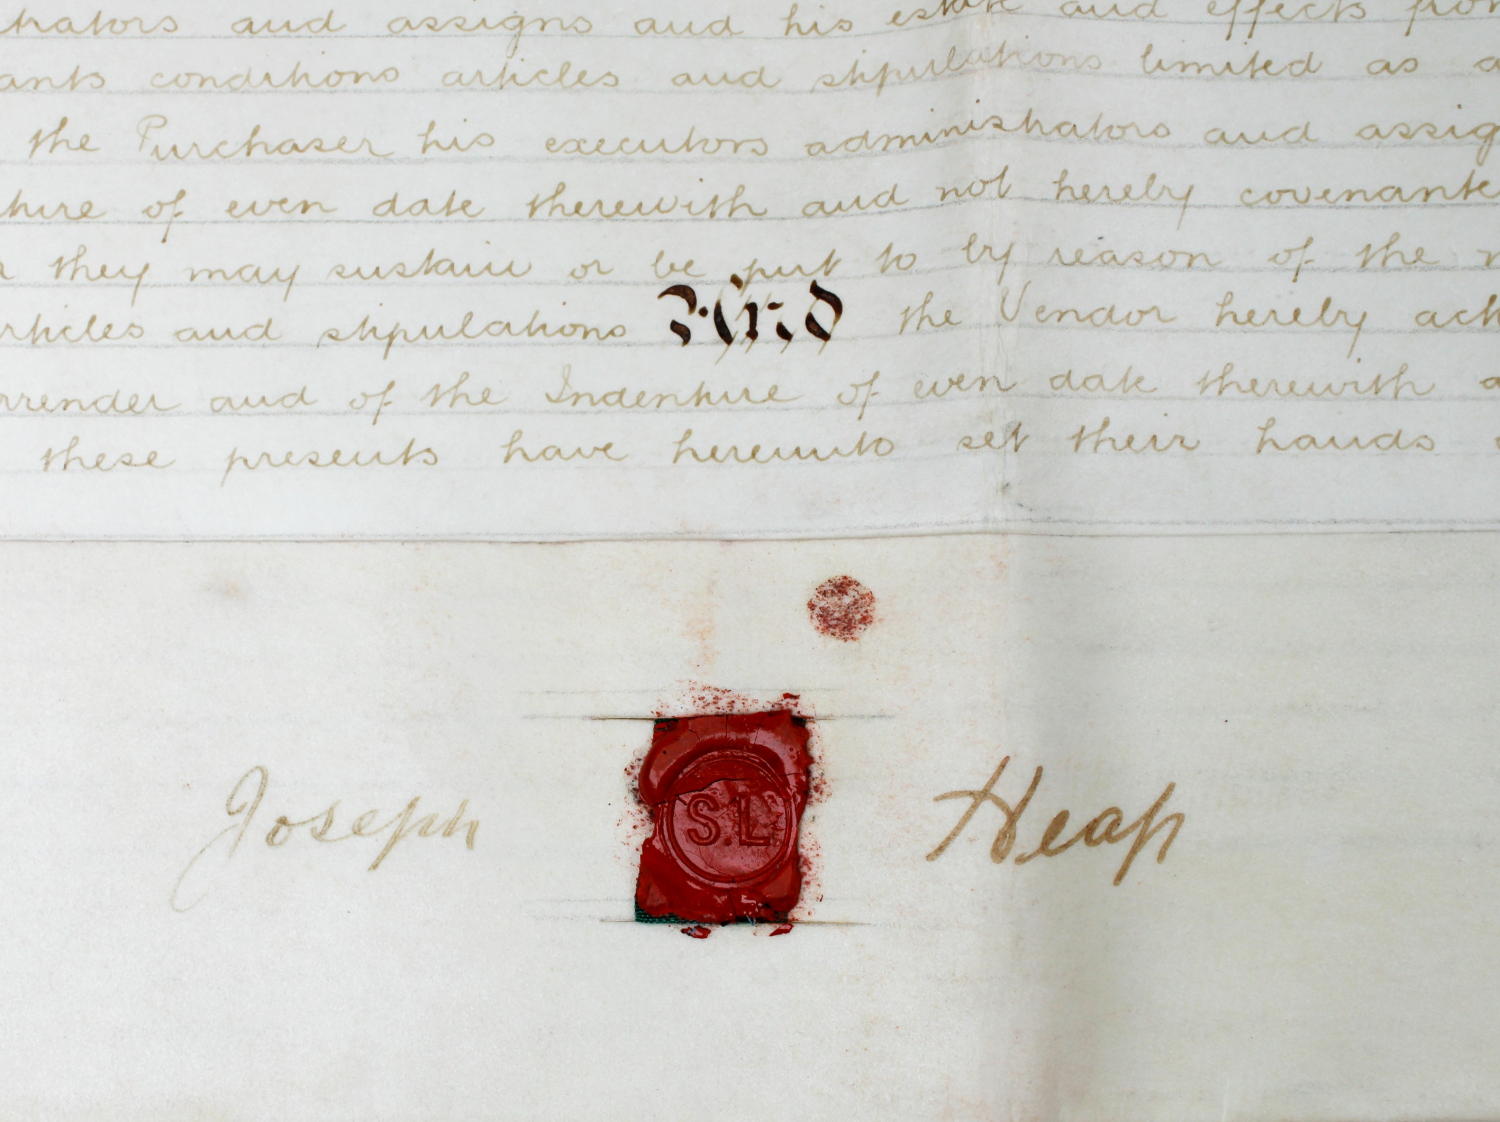 trators and assigns and his estate and effects from
ants conditions articles and stipulations limited as a
the Purchaser his executors administrators and assig
ture of even date therewith and not hereby covenante
they may sustain or be put to by reason of the
rticles and stipulations And the Vendor hereby ack
rrender and of the Indenture of even date therewith a
these presents have hereunto set their hands
Joseph S.L Heap